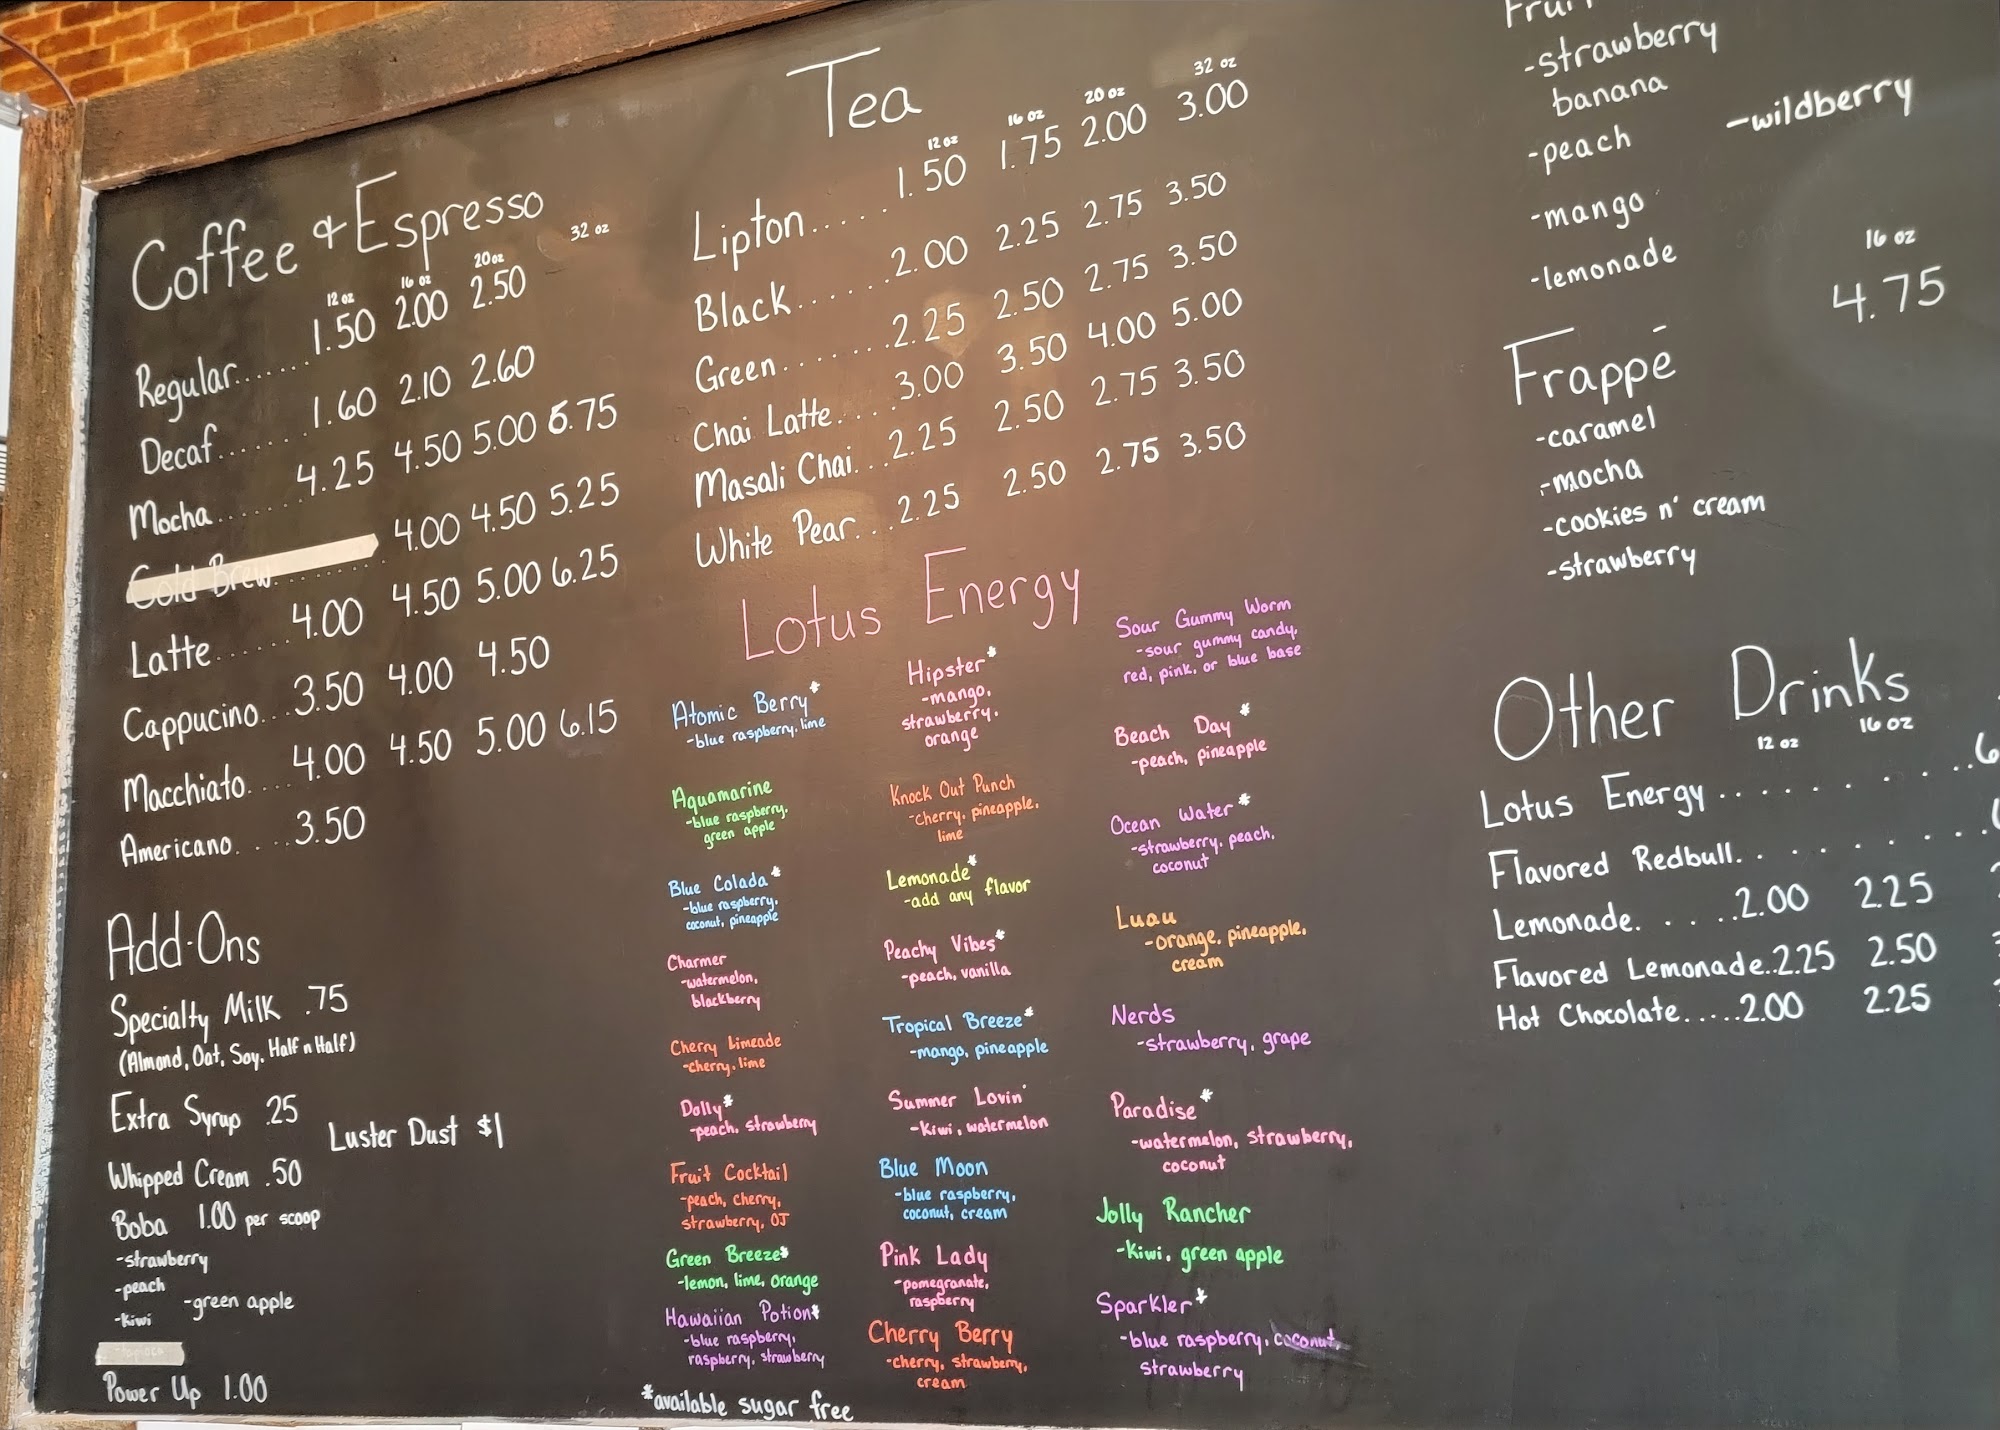 Coffee & Espresso
12 oz 16 oz 20 oz 32 oz
Regular........1.50 2.00 2.50
Decaf.......1.60 2.10 2.60
Mocha.......4.25 4.50 5.00 6.75
Cold Brew.......... 4.00 4.50 5.25
Latte......4.00 4.50 5.00 6.25
Cappucino...3.50 4.00 4.50
Macchiato....4.00 4.50 5.00 6.15
Americano.....3.50
Add-Ons
Specialty Milk .75
(Almond, Oat, Soy, Half n Half)
Extra Syrup .25
Luster Dust $1
Whipped Cream .50
Boba 1.00 per scoop
-strawberry
-peach
-kiwi
-green apple
Power Up 1.00
Tea
12 oz 16 oz 20 oz 32 oz
Lipton.....1.50 1.75 2.00 3.00
Black......2.00 2.25 2.75 3.50
Green.......2.25 2.50 2.75 3.50
Chai Latte....3.00 3.50 4.00 5.00
Masali Chai...2.25 2.50 2.75 3.50
White Pear...2.25 2.50 2.75 3.50
Lotus Energy
Atomic Berry*
-blue raspberry, lime
Aquamarine
-blue raspberry,
green apple
Blue Colada*
-blue raspberry,
coconut, pineapple
Charmer
-watermelon,
blackberry
Cherry Limeade
-cherry, lime
Dolly*
-peach, strawberry
Fruit Cocktail
-peach, cherry,
strawberry, OJ
Green Breeze*
-lemon, lime, orange
Hawaiian Potion*
-blue raspberry,
raspberry, strawberry
Hipster*
-mango,
strawberry,
orange
Knock Out Punch
-cherry, pineapple,
lime
Lemonade*
-add any flavor
Peachy Vibes*
-peach, vanilla
Tropical Breeze*
-mango, pineapple
Summer Lovin'
-kiwi, watermelon
Blue Moon
-blue raspberry,
coconut, cream
Pink Lady
-pomegranate,
raspberry
Cherry Berry
-cherry, strawberry,
cream
Sour Gummy Worm
-sour gummy candy,
red, pink, or blue base
Beach Day*
-peach, pineapple
Ocean Water*
-strawberry, peach,
coconut
Luau
-orange, pineapple,
cream
Nerds
-strawberry, grape
Paradise*
-watermelon, strawberry,
coconut
Jolly Rancher
-kiwi, green apple
Sparkler*
-blue raspberry, coconut,
strawberry
*available sugar free
-strawberry
banana
-peach
-wildberry
-mango
-lemonade
16 oz
Frappē 4.75
-caramel
-mocha
-cookies n' cream
-strawberry
Other Drinks
12 oz 16 oz
Lotus Energy.........6
Flavored Redbull.........
Lemonade.....2.00 2.25
Flavored Lemonade..2.25 2.50
Hot Chocolate.....2.00 2.25